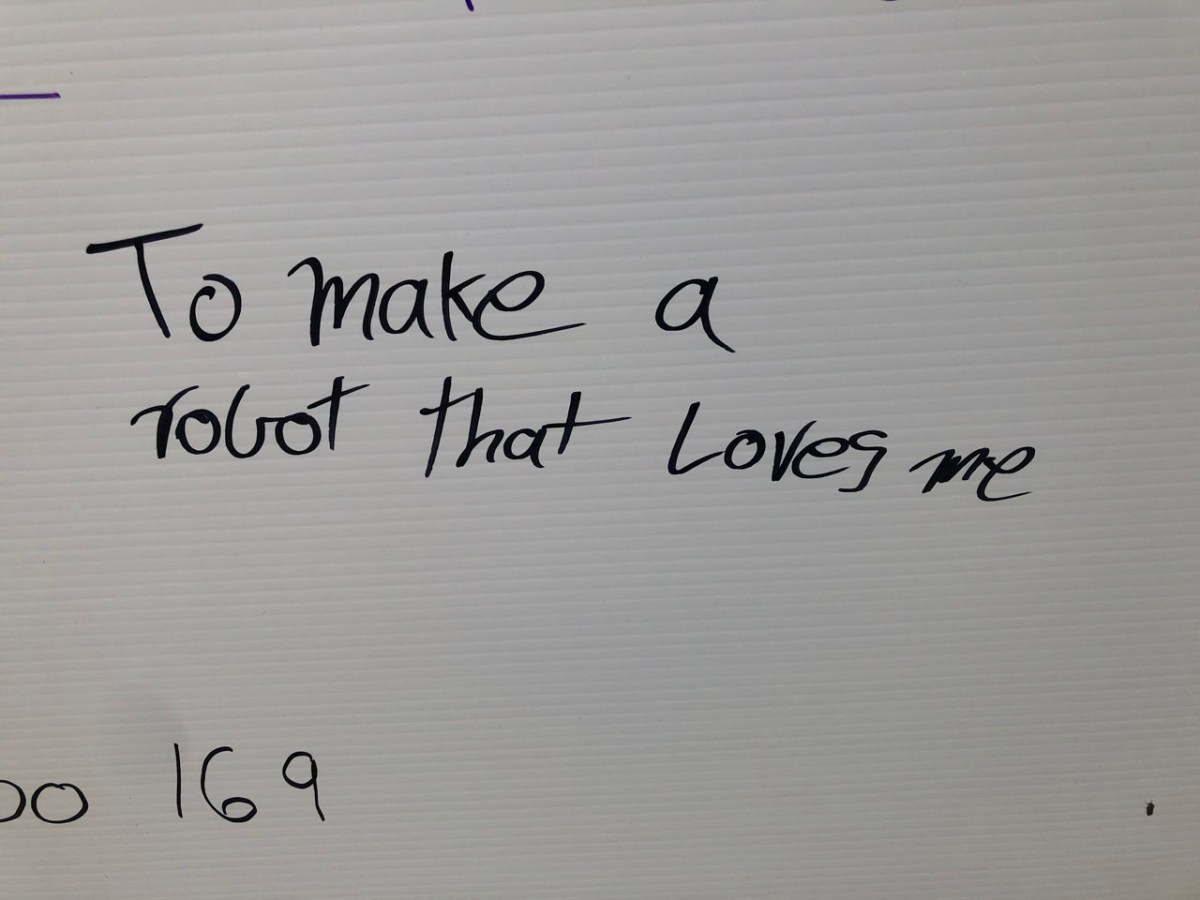 To make a
robot that Loves me
169